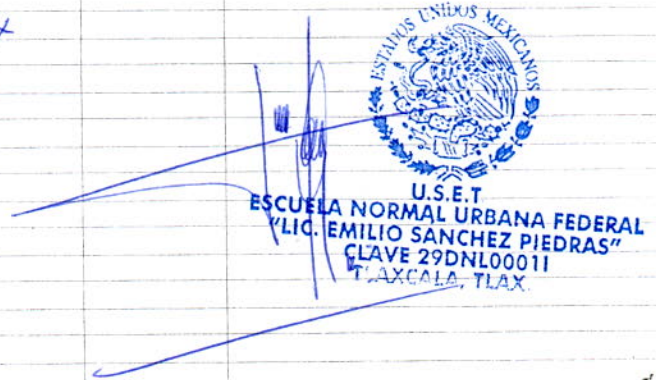 ESTADOS UNIDOS MEXICANOS
U.S.E.T
ESCUELA NORMAL URBANA FEDERAL
"LIC. EMILIO SANCHEZ PIEDRAS"
CLAVE 29DNL0001I
TLAXCALA, TLAX.